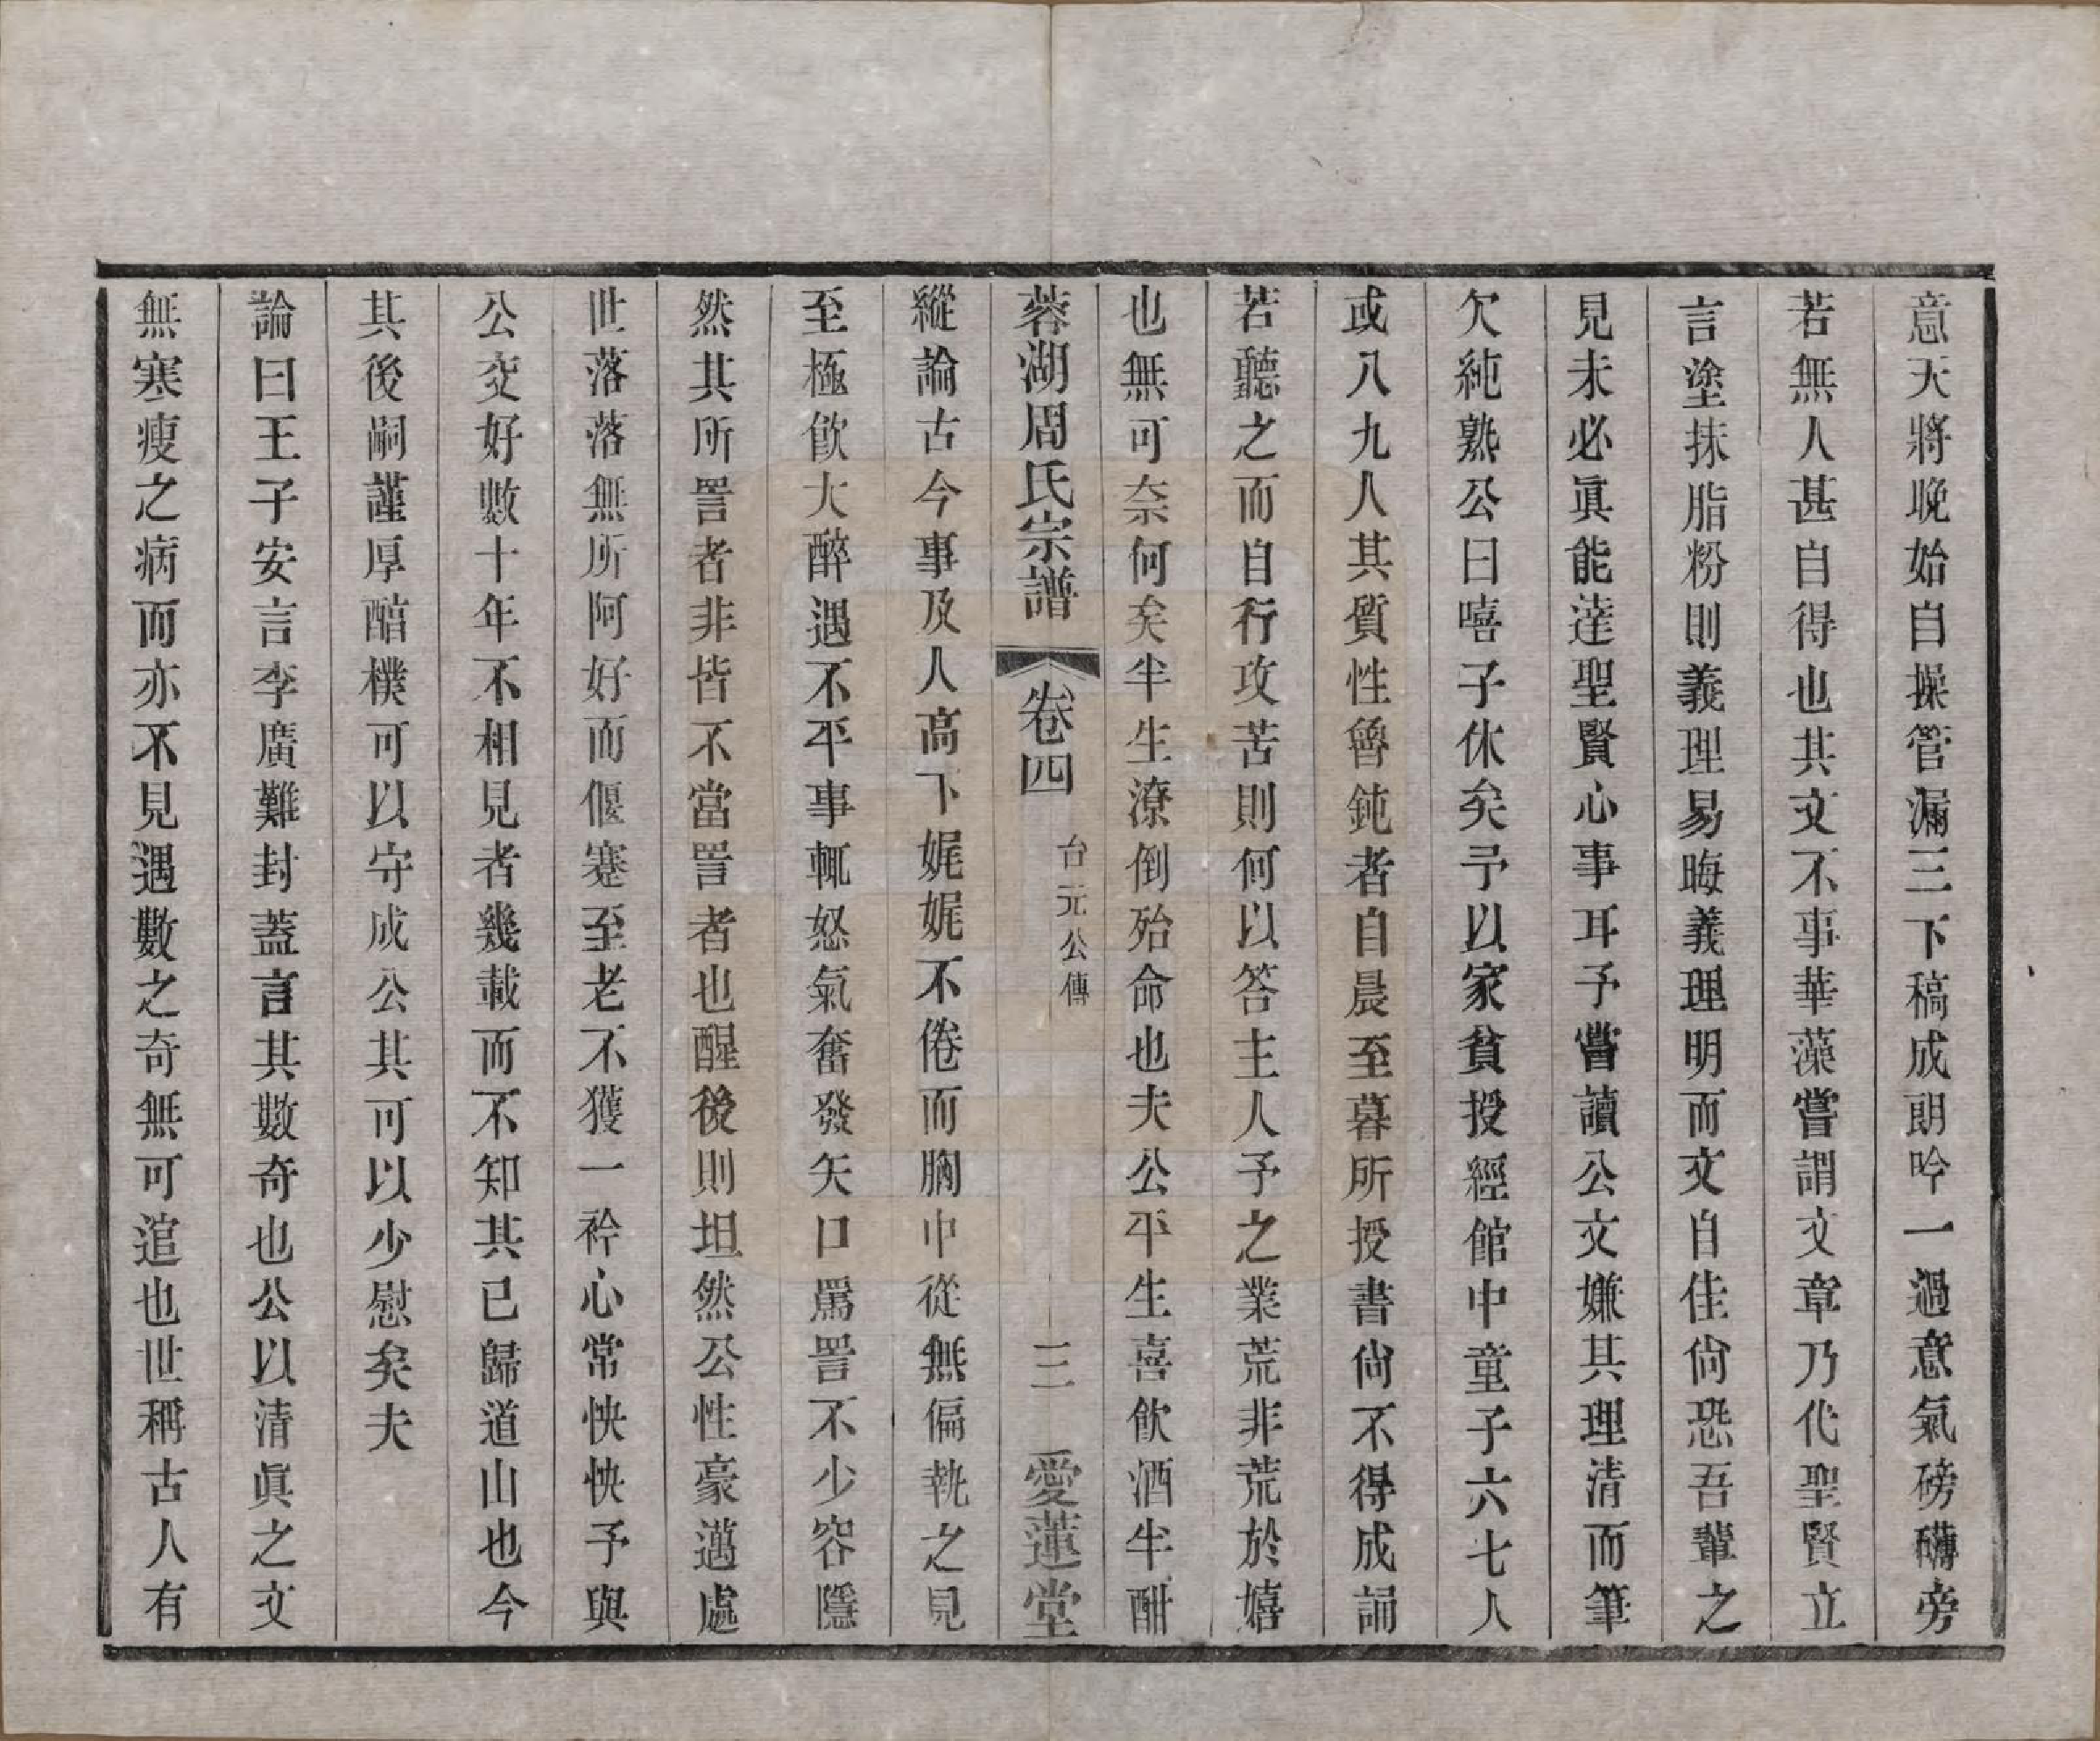 意天將晚始自操管漏三下稿成朗吟一過意氣磅礴旁
若無人甚自得也其文不事華藻嘗謂文章乃代聖賢立
言塗抹脂粉則義理易晦義理明而文自佳尙恐吾輩之
見未必眞能達聖賢心事耳予嘗讀公文嫌其理清而筆
欠純熟公曰嘻子休矣予以家貧授經館中童子六七人
或八九人其質性魯鈍者自晨至暮所授書尙不得成誦
若聽之而自行攻苦則何以答主人予之業荒非荒於嬉
也無可奈何矣半生潦倒殆命也夫公平生喜飮酒半酣
蓉湖周氏宗譜 卷四 台元公傳 三 愛蓮堂
縱論古今事及人高下娓娓不倦而胸中從無偏執之見
至極飮大醉遇不平事輒怒氣奮發矢口罵詈不少容隱
然其所詈者非皆不當詈者也醒後則坦然公性豪邁處
世落落無所阿好而偃蹇至老不獲一衿心常怏怏予與
公交好數十年不相見者幾載而不知其已歸道山也今
其後嗣謹厚醕樸可以守成公其可以少慰矣夫
論曰王子安言李廣難封蓋言其數奇也公以清眞之文
無寒瘦之病而亦不見遇數之奇無可逭也世稱古人有